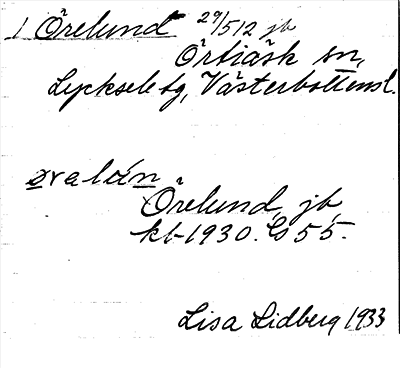 1 Örelund 29/512 jb
Örträsk sn,
Lycksele tg, Västerbottensl.
øralón
Örelund, jb,
kb-1930. GS 55.
Lisa Lidberg 1933